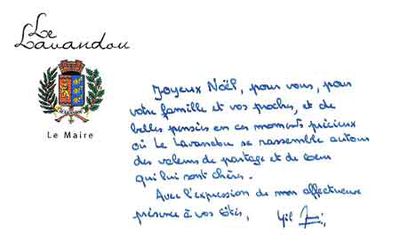 Le
Lavandou
Le Maire
Joyeux Noël, pour vous, pour
votre famille et vos proches, et de
belles pensées en ces moments précieux
où Le Lavandou se rassemble autour
des valeurs de partage et de cœur
qui lui sont chères.
Avec l'expression de mon affectueuse
présence à vos côtés,
Gil